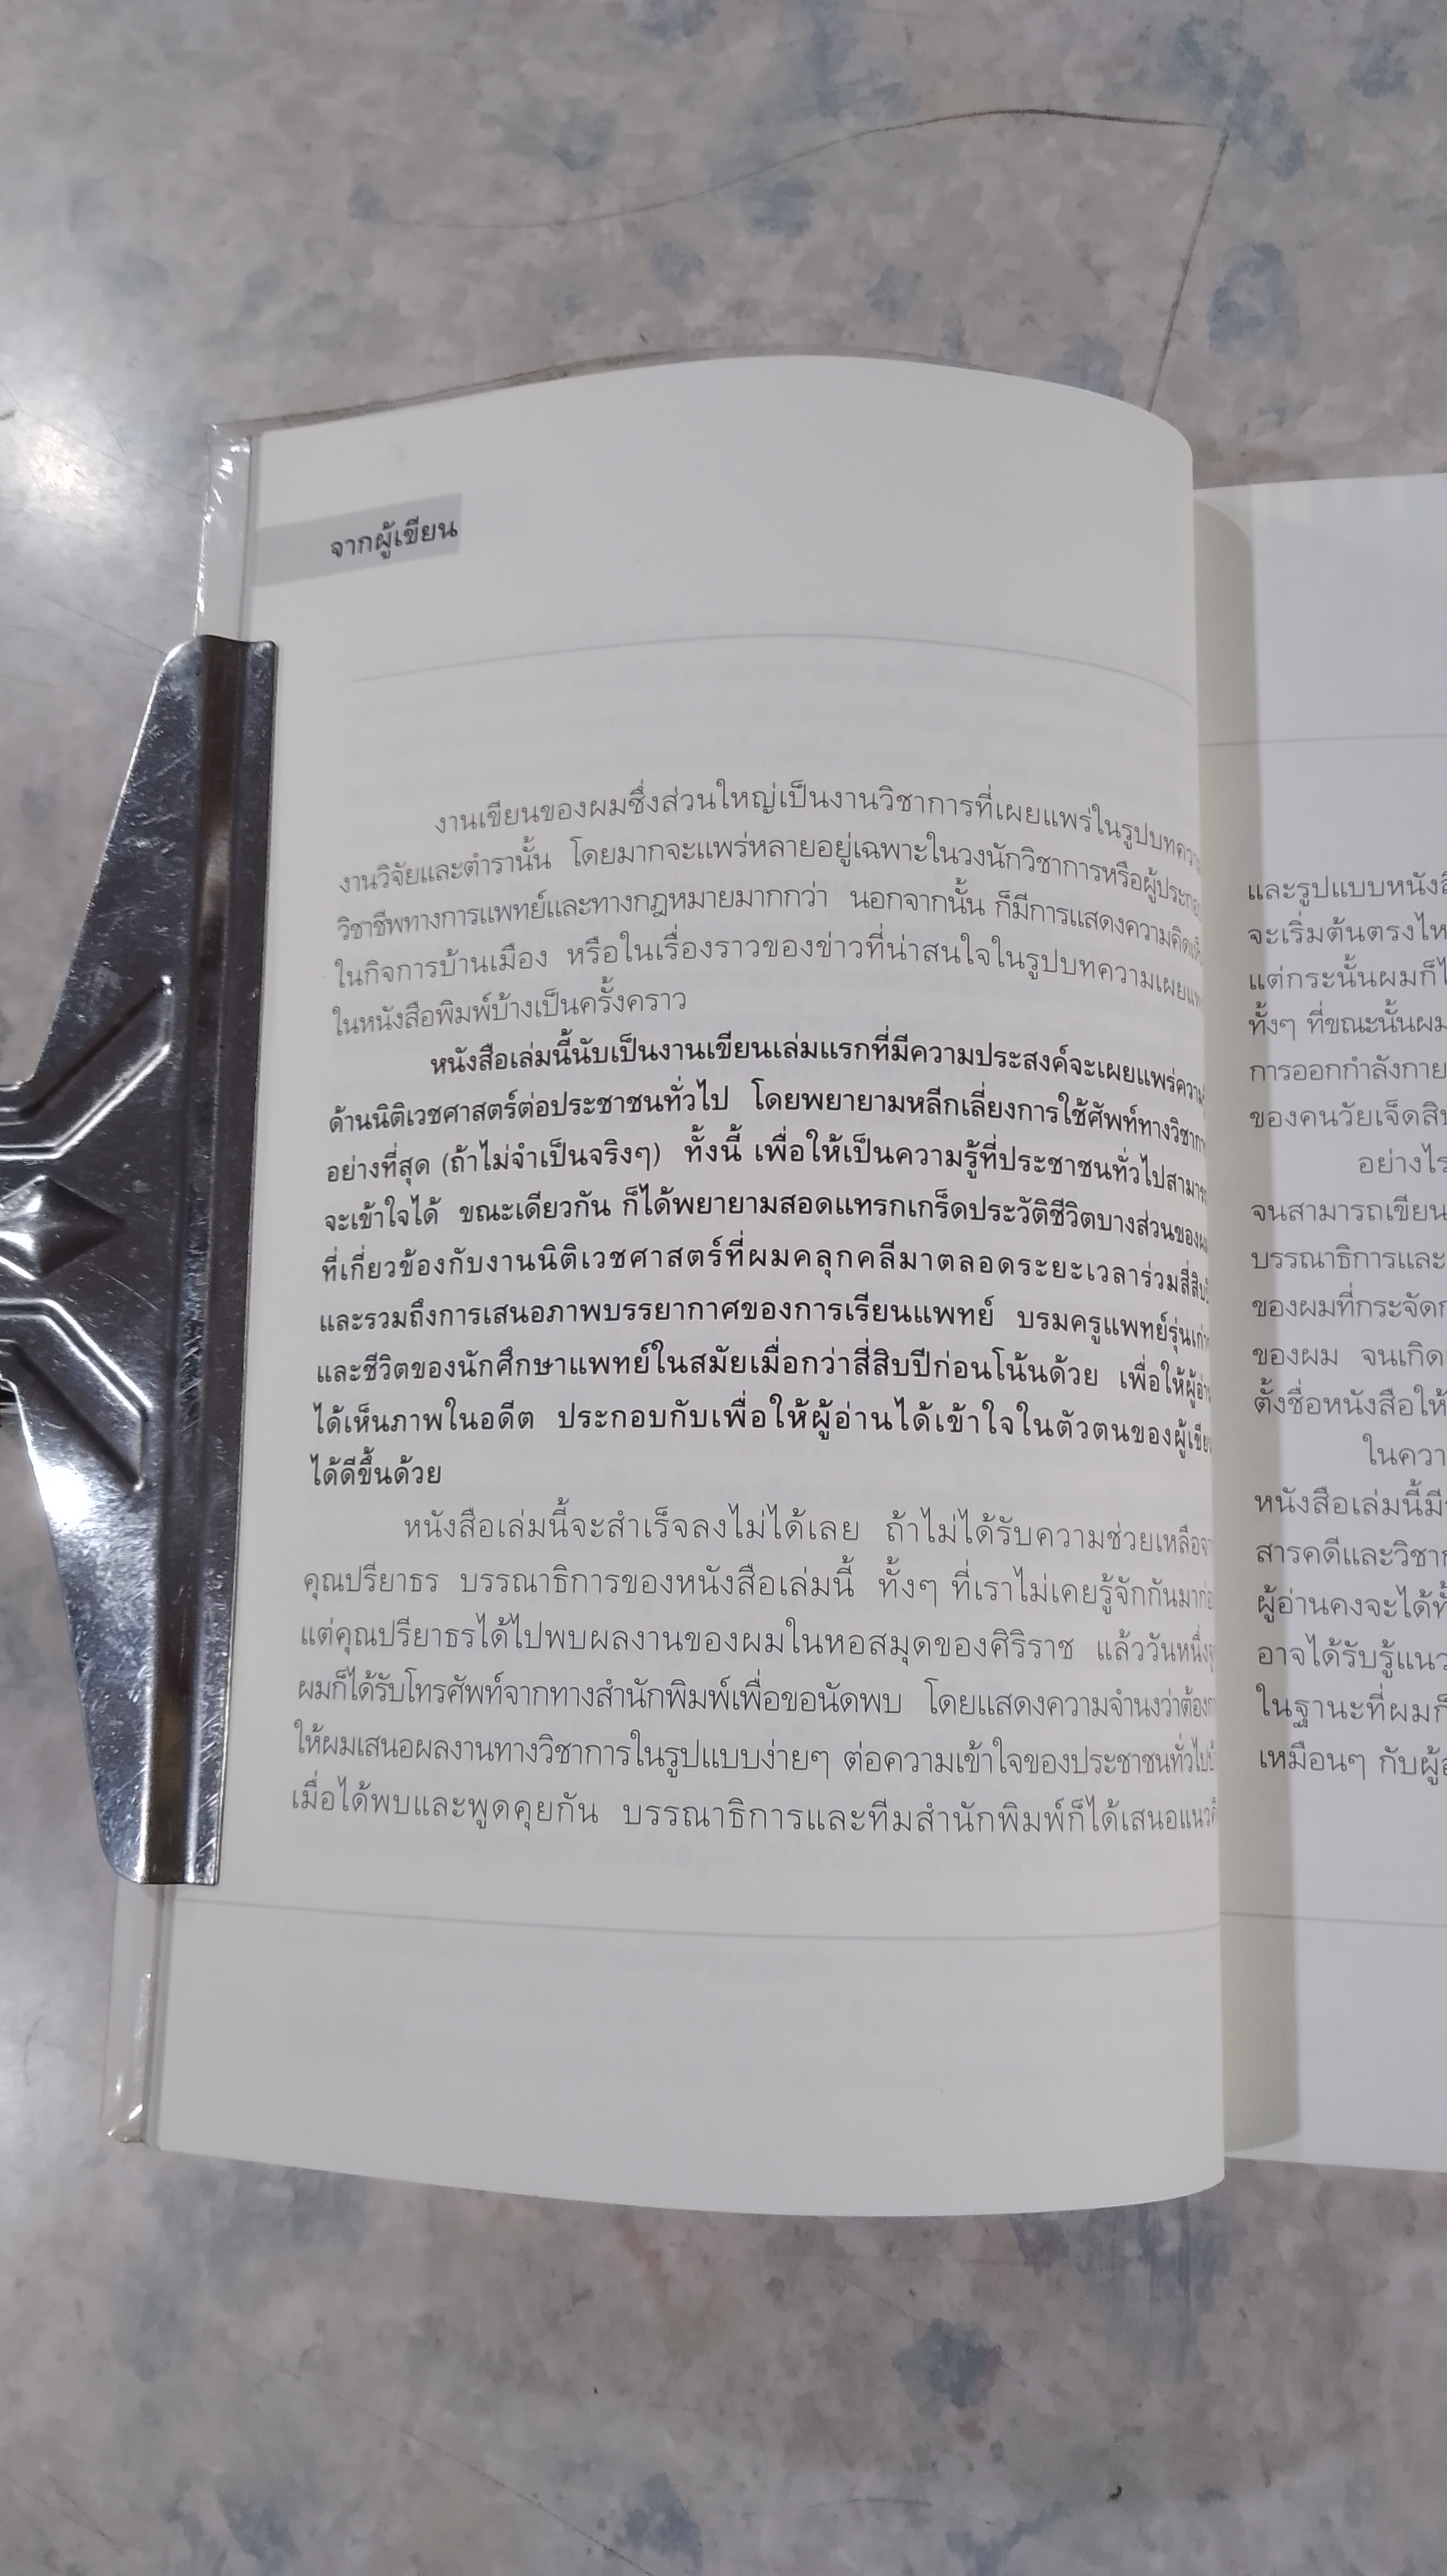 จากผู้เขียน
งานเขียนของผมซึ่งส่วนใหญ่เป็นงานวิชาการที่เผยแพร่ในรูปบทความ
งานวิจัยและตำรานั้น โดยมากจะแพร่หลายอยู่เฉพาะในวงนักวิชาการหรือผู้ประกอบ
วิชาชีพทางการแพทย์และทางกฎหมายมากกว่า นอกจากนั้น ก็มีการแสดงความคิดเห็น
ในกิจการบ้านเมือง หรือในเรื่องราวของข่าวที่น่าสนใจในรูปบทความเผยแพร่
ในหนังสือพิมพ์บ้างเป็นครั้งคราว
หนังสือเล่มนี้นับเป็นงานเขียนเล่มแรกที่มีความประสงค์จะเผยแพร่ความ
ด้านนิติเวชศาสตร์ต่อประชาชนทั่วไป โดยพยายามหลีกเลี่ยงการใช้ศัพท์ทางวิชาการ
อย่างที่สุด (ถ้าไม่จำเป็นจริงๆ) ทั้งนี้ เพื่อให้เป็นความรู้ที่ประชาชนทั่วไปสามารถ
จะเข้าใจได้ ขณะเดียวกัน ก็ได้พยายามสอดแทรกเกร็ดประวัติชีวิตบางส่วนของผม
ที่เกี่ยวข้องกับงานนิติเวชศาสตร์ที่ผมคลุกคลีมาตลอดระยะเวลาร่วมสี่สิบปี
และรวมถึงการเสนอภาพบรรยากาศของการเรียนแพทย์ บรมครูแพทย์รุ่นเก่า
และชีวิตของนักศึกษาแพทย์ในสมัยเมื่อกว่าสี่สิบปีก่อนโน้นด้วย เพื่อให้ผู้อ่าน
ได้เห็นภาพในอดีต ประกอบกับเพื่อให้ผู้อ่านได้เข้าใจในตัวตนของผู้เขียน
ได้ดีขึ้นด้วย
หนังสือเล่มนี้จะสำเร็จลงไม่ได้เลย ถ้าไม่ได้รับความช่วยเหลือจาก
คุณปรียาธร บรรณาธิการของหนังสือเล่มนี้ ทั้งๆ ที่เราไม่เคยรู้จักกันมาก่อน
แต่คุณปรียาธรได้ไปพบผลงานของผมในหอสมุดของศิริราช แล้ววันหนึ่ง
ผมก็ได้รับโทรศัพท์จากทางสำนักพิมพ์เพื่อขอนัดพบ โดยแสดงความจำนงว่าต้องการ
ให้ผมเสนอผลงานทางวิชาการในรูปแบบง่ายๆ ต่อความเข้าใจของประชาชนทั่วไป
เมื่อได้พบและพูดคุยกัน บรรณาธิการและทีมสำนักพิมพ์ก็ได้เสนอแนวคิด
และรูปแบบหนังสื
จะเริ่มต้นตรงไห
แต่กระนั้นผมก็
ทั้งๆ ที่ขณะนั้นผม
การออกกำลังกาย
ของคนวัยเจ็ดสิบ
อย่างไร
จนสามารถเขียน
บรรณาธิการและ
ของผมที่กระจัด
ของผม จนเกิด
ตั้งชื่อหนังสือให้
ในควา
หนังสือเล่มนี้มี
สารคดีและวิชา
ผู้อ่านคงจะได้
อาจได้รับรู้แนว
ในฐานะที่ผมก็
เหมือนๆ กับผู้อ